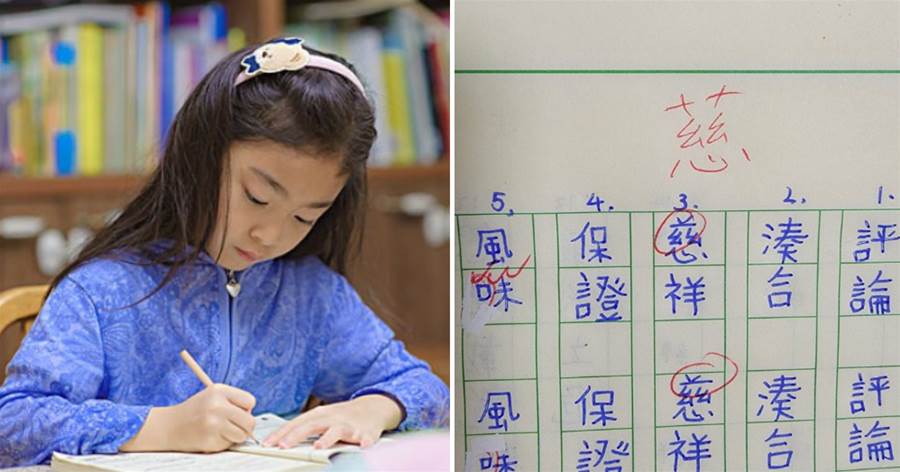 慈
1. 評論 評論
2. 湊合 湊合
3. 慈祥 慈祥
4. 保證 保證
5. 風味 風味